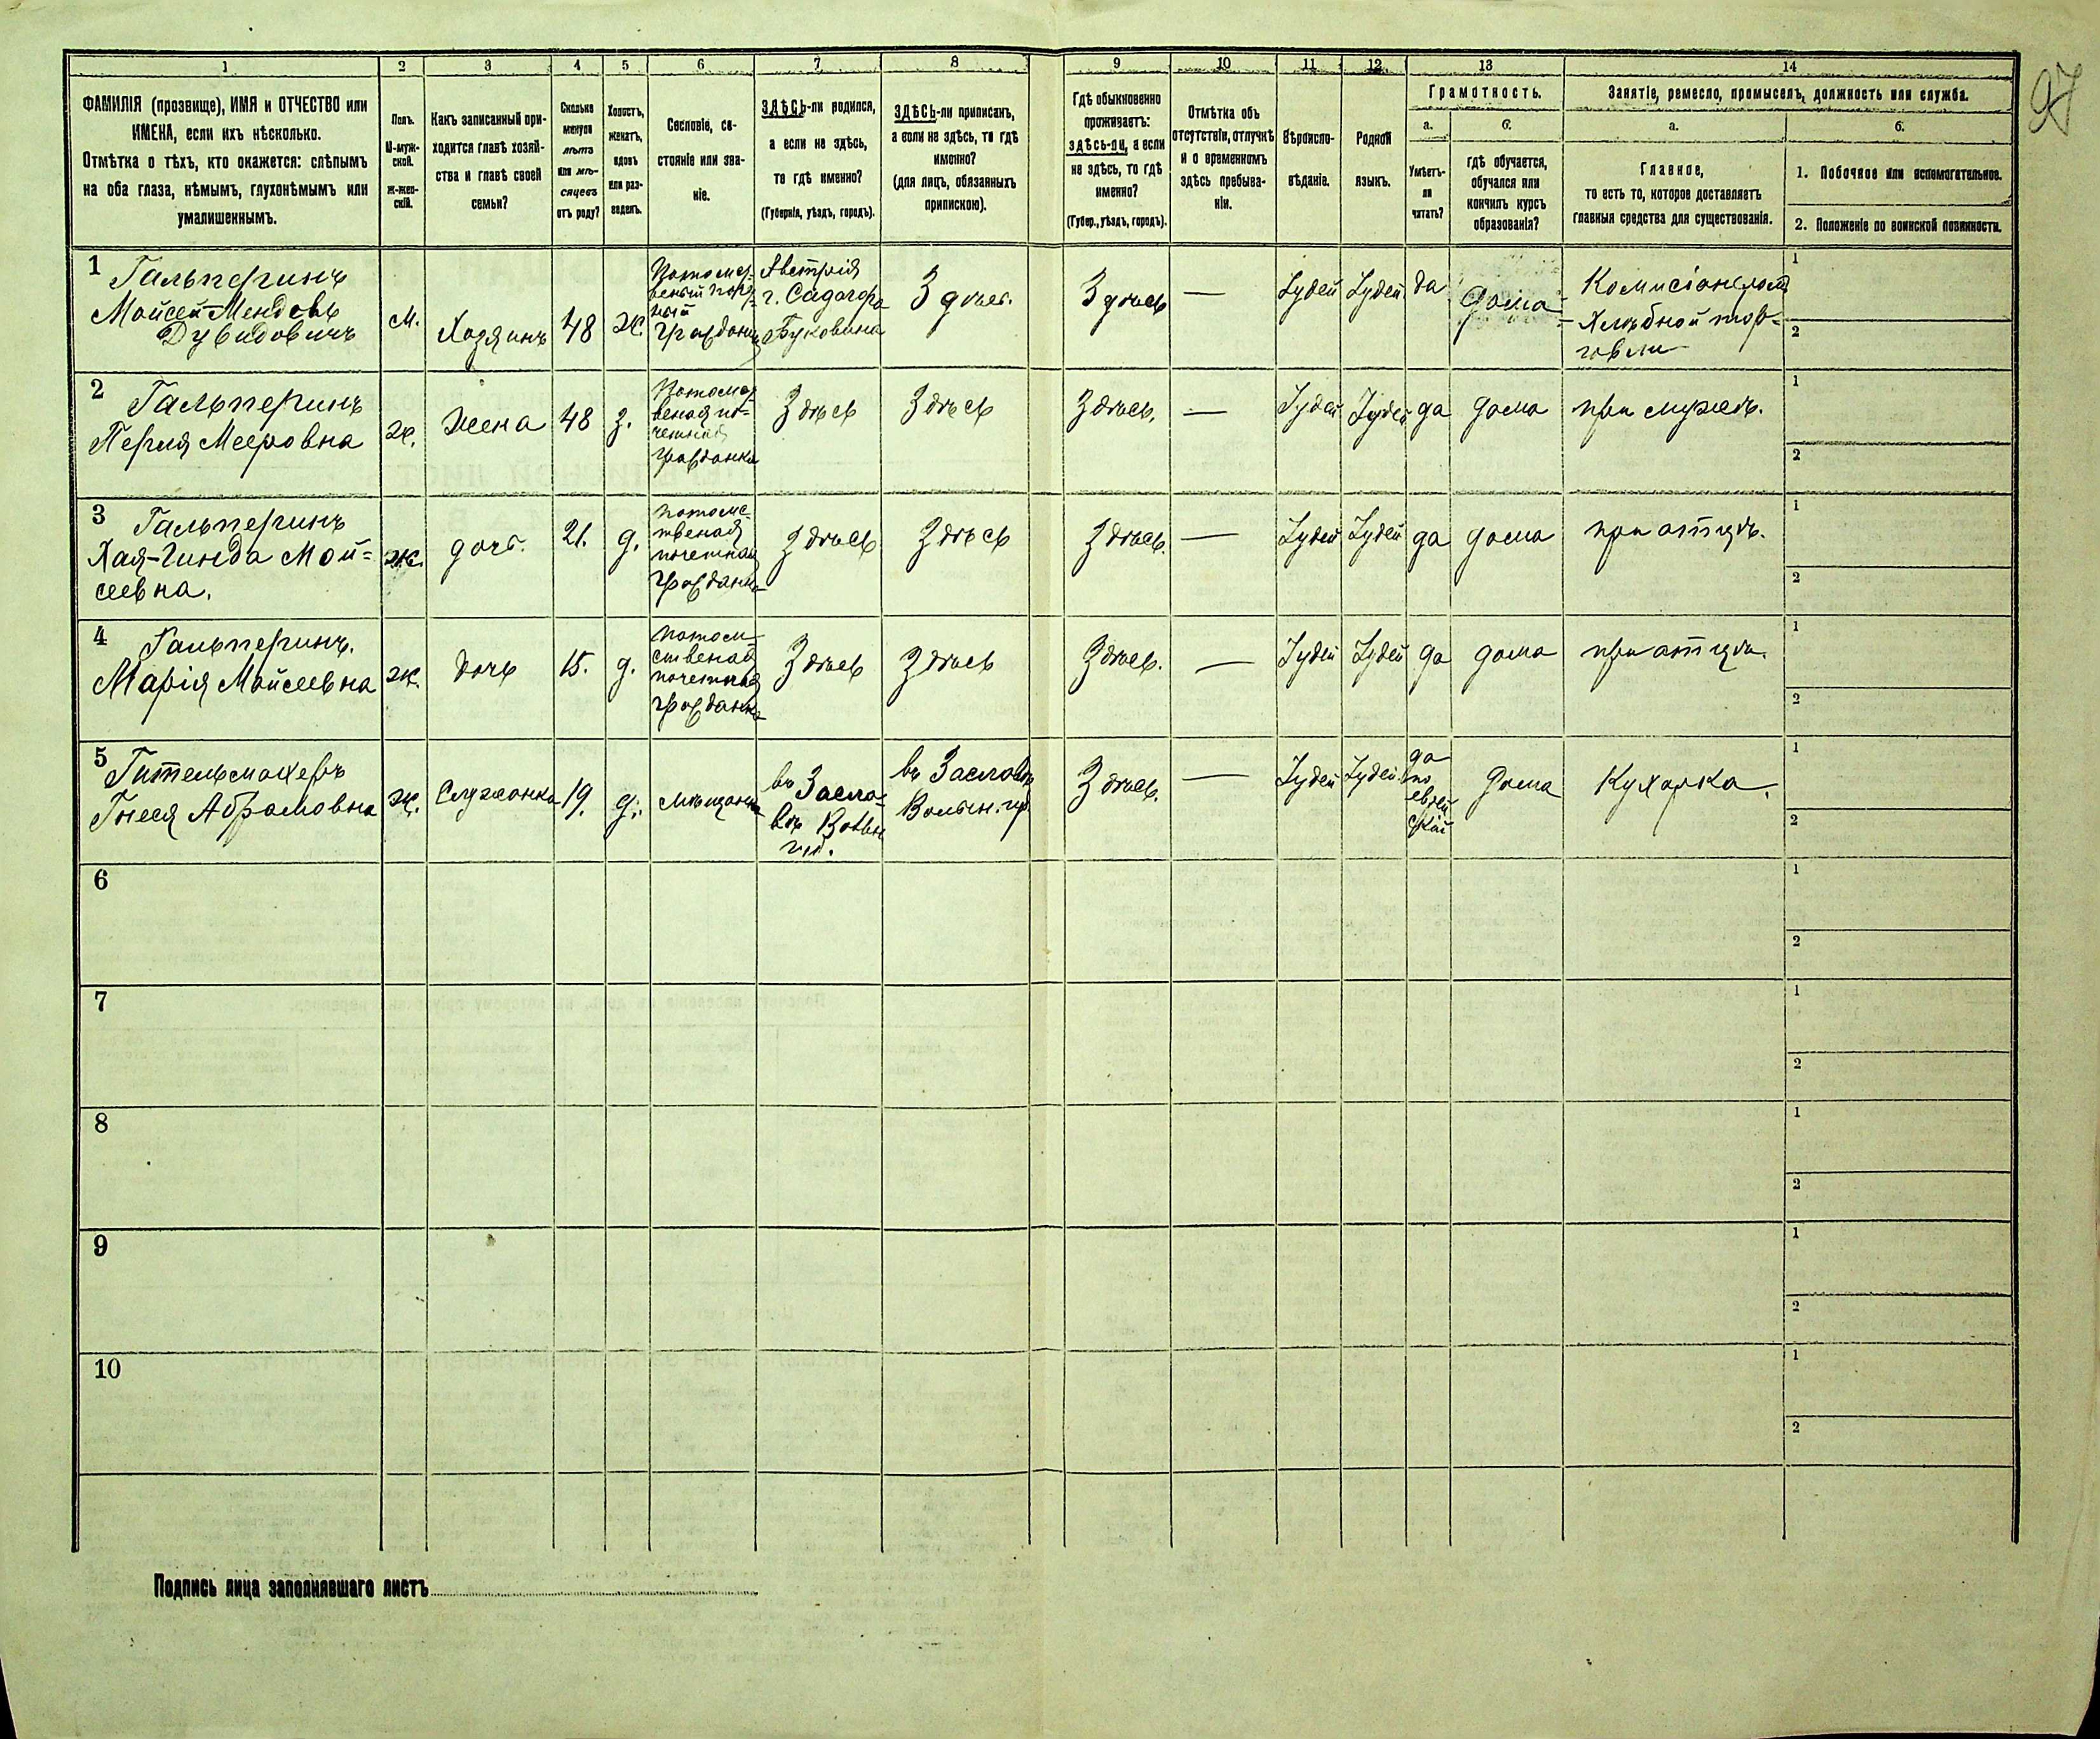 97
1 2 3 4 5 6 7 8 9 10 11 12 13 14
ФАМИЛІЯ (прозвище), ИМЯ и ОТЧЕСТВО или
ИМЕНА, если ихъ нѣсколько.
Отмѣтка о тѣхъ, кто окажется: слѣпымъ
на оба глаза, нѣмымъ, глухонѣмымъ или
умалишеннымъ.
Полъ.
М-муж-
ской.
Ж-жен-
скій.
Какъ записанный при-
ходится главѣ хозяй-
ства и главѣ своей
семьи?
Сколько
минуло
лѣтъ
или мѣ-
сяцевъ
отъ роду?
Холостъ,
женатъ,
вдовъ
или раз-
веденъ.
Сословіе, со-
стояніе или зва-
ніе.
ЗДѢСЬ-ли родился,
а если не здѣсь,
то гдѣ именно?
(Губернія, уѣздъ, городъ).
ЗДѢСЬ-ли приписанъ,
а если не здѣсь, то гдѣ
именно?
(для лицъ, обязанныхъ
припискою).
Гдѣ обыкновенно
проживаетъ:
здѣсь-ли, а если
не здѣсь, то гдѣ
именно?
(Губер., уѣздъ, городъ).
Отмѣтка объ
отсутствіи, отлучкѣ
и о временномъ
здѣсь пребыва-
ніи.
Вѣроиспо-
вѣданіе.
Родной
языкъ.
Грамотность.
а.
Умѣетъ-
ли
читать?
б.
гдѣ обучается,
обучался или
кончилъ курсъ
образованія?
Занятіе, ремесло, промыселъ, должность или служба.
а.
Главное,
то есть то, которое доставляетъ
главныя средства для существованія.
б.
1. Побочное или вспомогательное.
2. Положеніе по воинской повинности.
1 Гальперинъ
Мойсей-Мендель
Дувидовичъ
м.
Хозяинъ
48
ж.
Потомст-
венный
граждан
Австрія
г. Садагора
Буковина
Здѣсь.
Здѣсь
—
Іудей
Іудей
да
дома
Комисіонером
Хлѣбной тор-
говли
1
2
2 Гальперинъ
Перля Мееровна
ж.
жена
48
з.
Потомст-
веная по-
четная
гражданка
Здѣсь
Здѣсь
Здѣсь.
—
Іудей
Іудей
да
дома
при мужѣ.
1
2
3 Гальперинъ
Хая-Гинда Мой-
сеевна.
ж.
дочь.
21.
д.
потомс-
твеная
почетная
граждан-
Здѣсь
Здѣсь
Здѣсь.
—
Іудей
Іудей
да
дома
при отцѣ.
1
2
4 Гальперинъ.
Марія Мойсеевна
ж.
дочь
15.
д.
потом-
ственая
почетная
граждан-
Здѣсь
Здѣсь
Здѣсь.
—
Іудей
Іудей
да
дома
при отцѣ.
1
2
5 Гительмахеръ
Гнеся Абрамовна
ж.
Служанка
19.
д.
мѣщанка
въ Засла-
вѣ Волын
губ.
въ Заславѣ
Волын. гу
Здѣсь.
—
Іудей
Іудей
да
по
еврей
ской
Дома
Кухарка.
1
2
6
1
2
7
1
2
8
1
2
9
1
2
10
1
2
Подпись лица заполнявшаго листъ